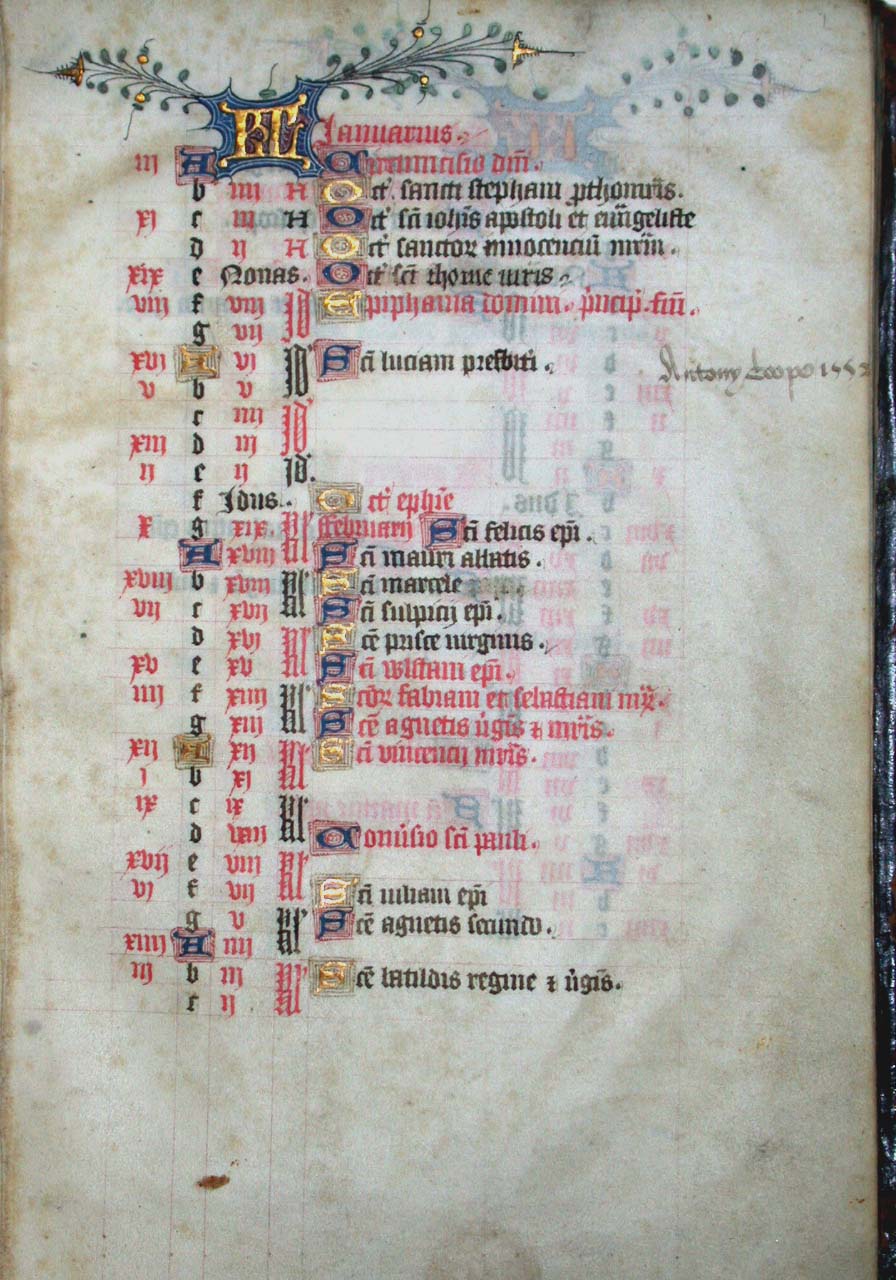 KL Januarius.
iii A Circumcisio dm̄.
b iiii N Oct̄. sancti stephani ꝓthomr̄is.
xi c iii N Oct̄ scī ioh̄is apostoli et euu̅ngeliste
d ii N Oct̄ sanctor innocenciū mr̄m.
xix e Nonas. Oct̄ scī thome
viii f viii Id Epiphania domini.
g vii
xvi A vi Id Scī luciani presbit̄i.
v b v
c iiii Id
xiii d iii
ii e ii Id.
f Idus. Oct̄ eph̄ie
x g xix. kl februarii Scī felicis ep̄i.
A xviii Scī mauri abbatis.
xviii b xvii kl Scī marcele
vii c xvi Scī sulpicij ep̄i.
d xvi kl Scē prisce uirginis.
xv e xv Scī wlstani ep̄i.
iiii f xiiii kl Scōr fabiani et sebastiani mr̄.
g xiii Scē agnetis ūgīs ⁊ mr̄is.
xii A xii kl Scī vincencij mr̄is.
i b xi
ix c ix kl
d viii Conūsio scī pauli.
xvii e viii kl
vi f vii Scī iuliani ep̄i
g v kl Scē agnetis secundo.
xiiii A iiii
iii b iii kl Scē batildis regine ⁊ ūgīs.
c ii
Antony 155